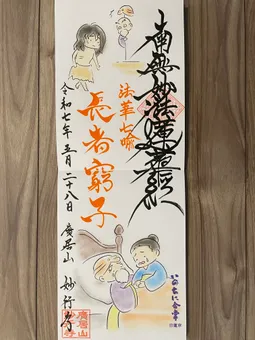 南無妙法蓮華経
法華七喩
長者窮子
令和七年五月二十八日
廣居山 妙行寺
いのちに合掌